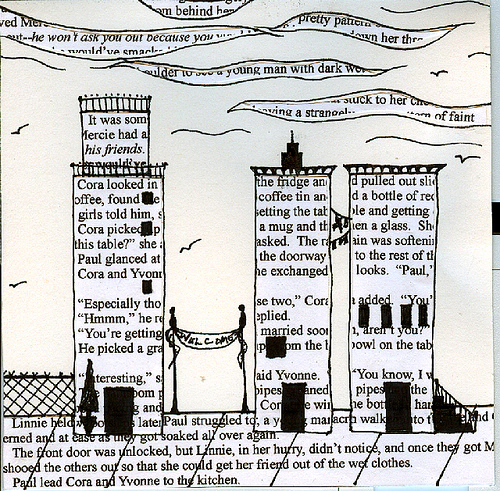 om behind her
ved Mer
Pretty patter
out--he won't ask you out because you
own her thr
would've smack
oulder to see a young man with dark
stuck to her
aving a strangely
rn of faint
It was som
Mercie had a
his friends.
would've
Cora looked in
offee, found
girls told him, s
Cora picked p
this table?" she
Paul glanced at
Cora and Yvon
"Especially tho
"Hmmm," he re
"You're getting
He picked a gra
"Interesting," s
oom p
g and
WELCOME
the fridge an
coffee tin an
setting the tab
a mug and th
asked. The r
the doorway
he exchanged
se two," Cora
eplied.
married soon
om the
aid Yvonne.
pipes aned
Cor e wi
d pulled out slic
d a bottle of rec
ole and getting
en a glass. Sh
ain was softenin
to the rest of th
looks. "Paul,'
added. "You'
n, aren't you?"
bowl on the tab
"You know, I w
pipes the
the bott har
Linnie held later Paul struggled to, a man walk
erned and at ease as they got soaked all over again.
The front door was unlocked, but Linnie, in her hurry, didn't notice, and once they got M
shooed the others out so that she could get her friend out of the wet clothes.
Paul lead Cora and Yvonne to the kitchen.